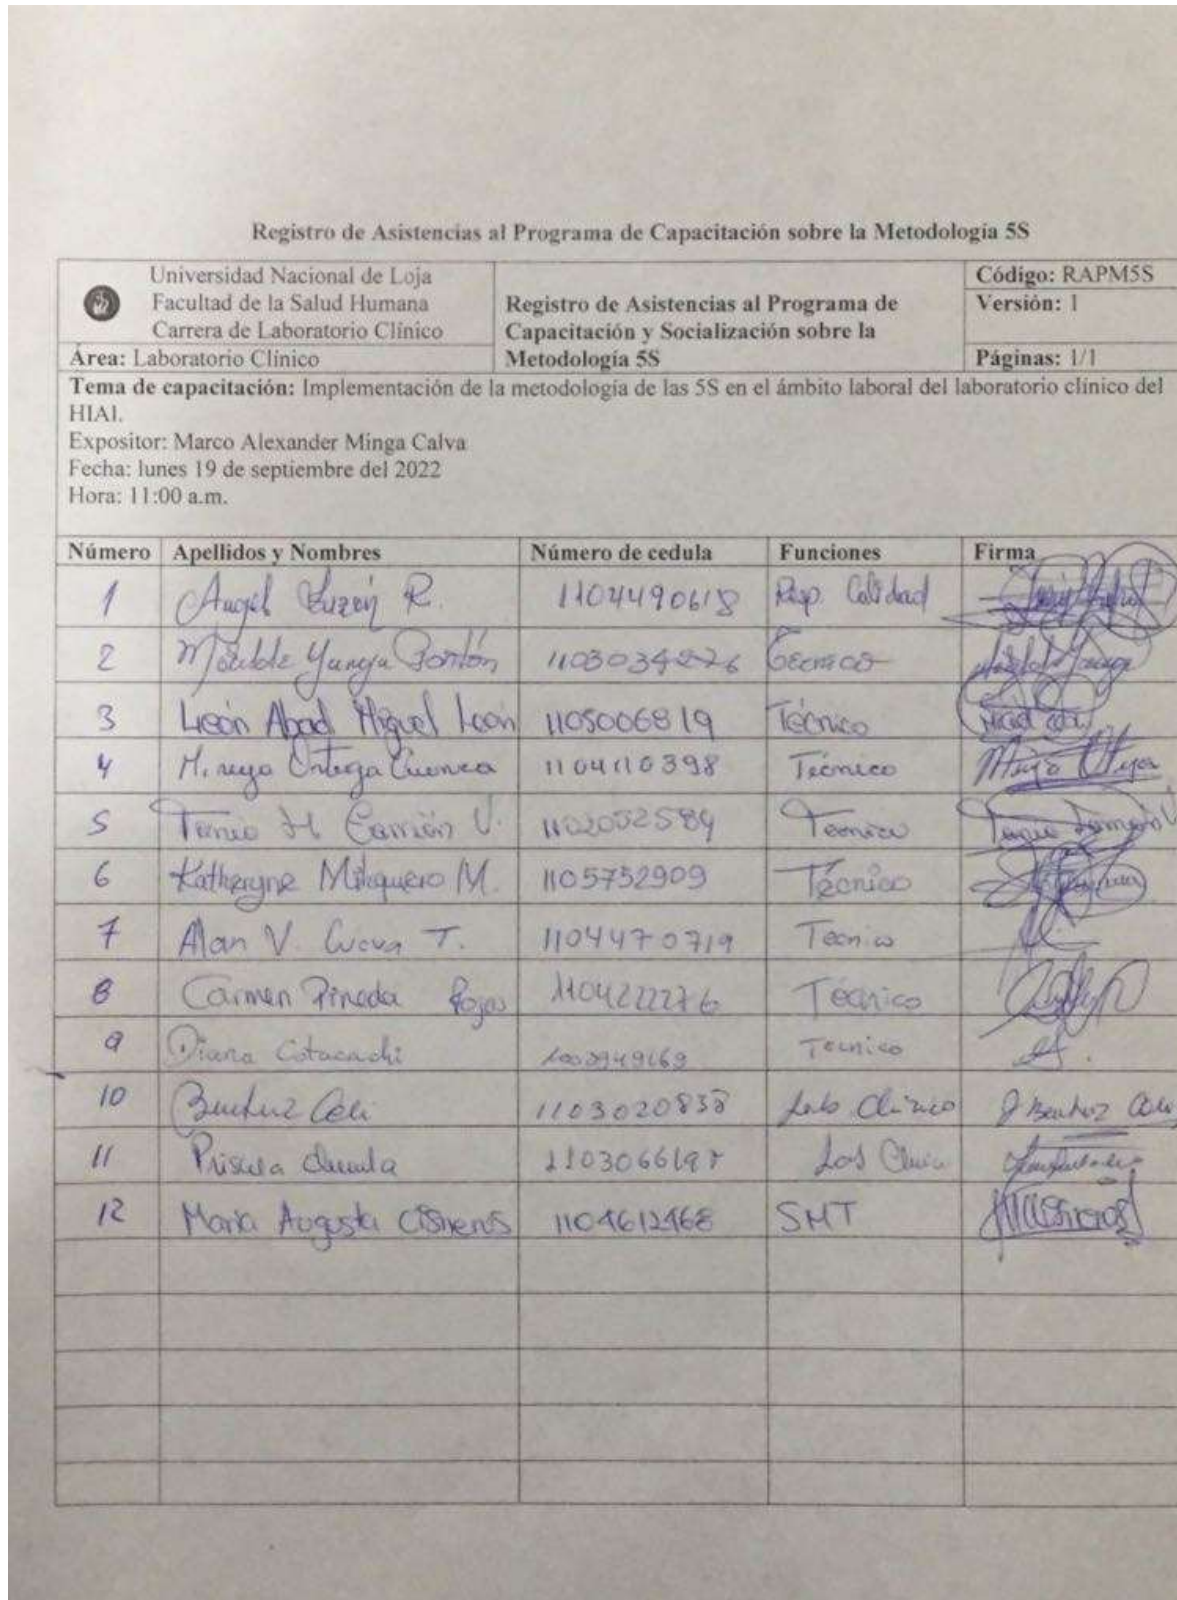 Registro de Asistencias al Programa de Capacitación sobre la Metodología 5S
Universidad Nacional de Loja
Facultad de la Salud Humana
Carrera de Laboratorio Clínico
Área: Laboratorio Clínico
Registro de Asistencias al Programa de
Capacitación y Socialización sobre la
Metodología 5S
Código: RAPM5S
Versión: 1
Páginas: 1/1
Tema de capacitación: Implementación de la metodología de las 5S en el ámbito laboral del laboratorio clínico del
HIAL.
Expositor: Marco Alexander Minga Calva
Fecha: lunes 19 de septiembre del 2022
Hora: 11:00 a.m.
Número Apellidos y Nombres Número de cedula Funciones Firma
1 Angel Luzón R. 1104490618 Resp. Calidad
2 1103034226 Técnico
3 León Abad Miguel León 1105006819 Técnico
4 Mireya Ortega Cuenca 1104110398 Técnico
5 H Carrión V. 1102052589 Tecnico
6 Katheryne M. 1105752909 Técnico
7 Alan V. Cueva T. 1104470719 Tecnico
8 Carmen Pineda Rojas 1104222276 Tecnico
9 Diana Cotacachi Tecnico
10 Celi 1103020838 Lab Clinico
11 110306619
12 Maria Augusta Cisneros 1104612468 SMT